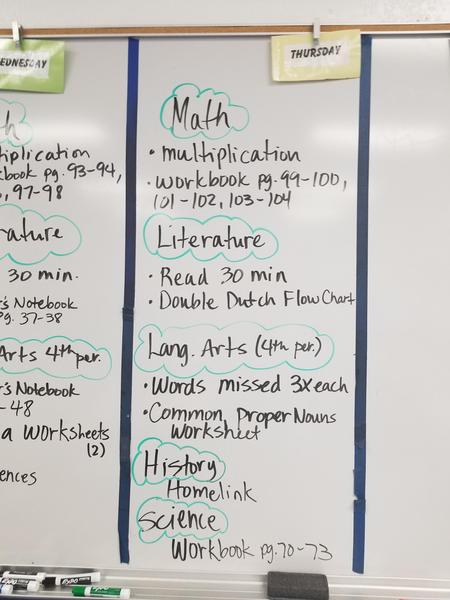 EDNESDAY
THURSDAY
h
tiplication
kbook pg. 93-94,
, 97-98
rature
30 min.
r's Notebook
pg. 37-38
Arts 4th per.
r's Notebook
-48
a Worksheets
(2)
ences
Math
• multiplication
• workbook pg. 99-100,
101-102, 103-104
Literature
• Read 30 min
• Double Dutch Flow Chart
Lang. Arts (4th per.)
• Words missed 3x each
• Common, Proper Nouns
Worksheet
History
Homelink
Science
Workbook pg. 70-73
EXPO